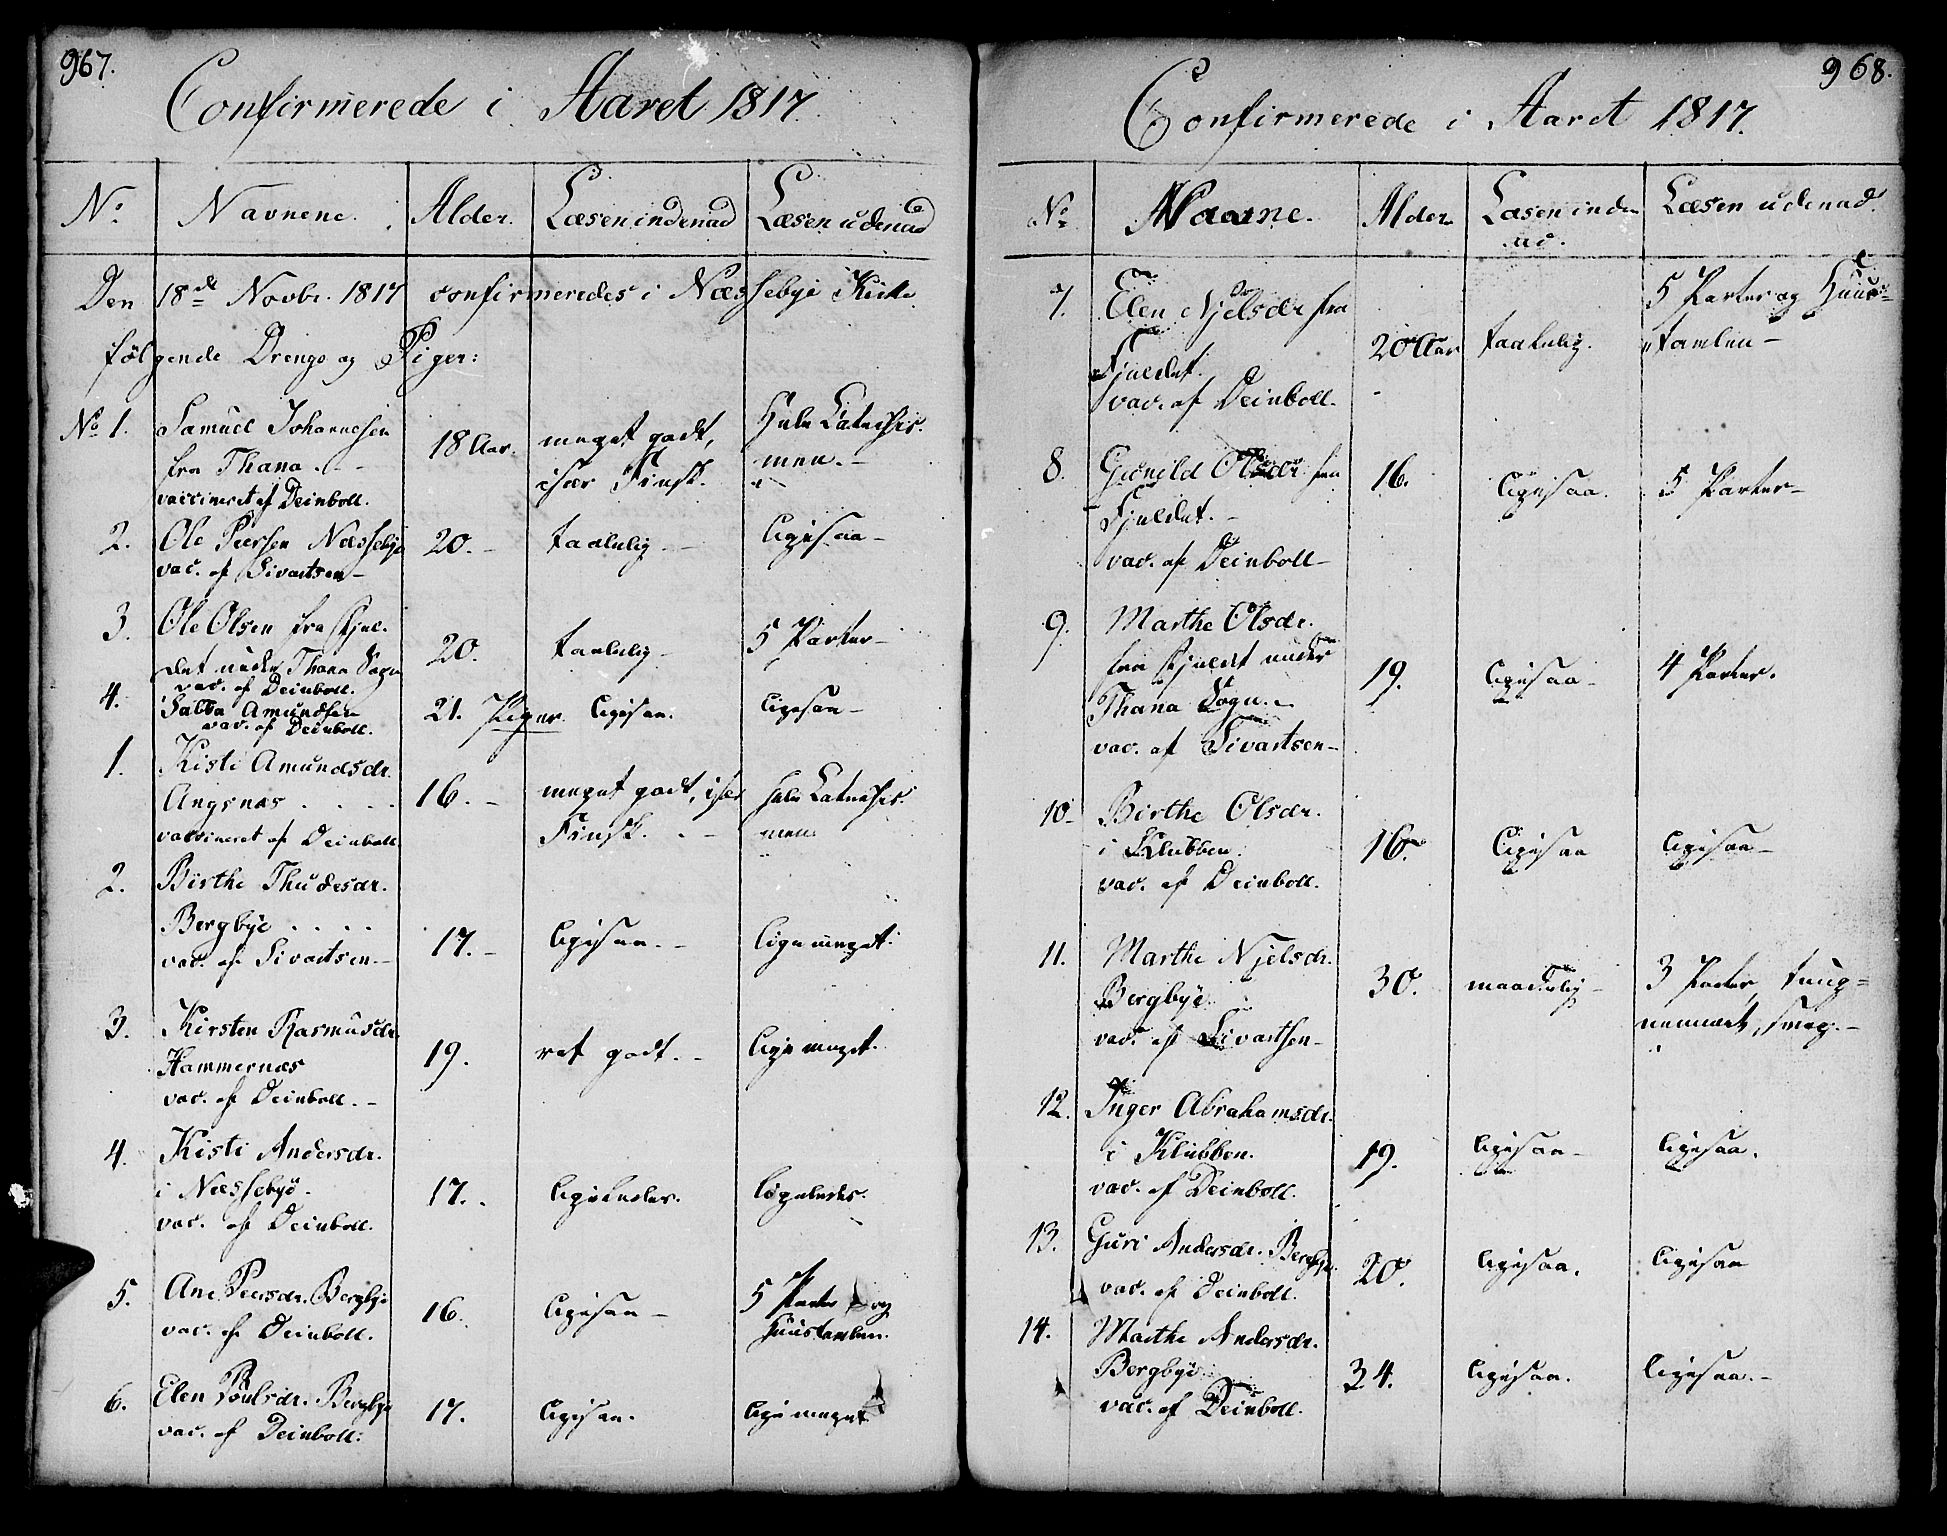 967.
Confirmerede i Aaret 1817.
No. Navnene. Alder. Læsen indenad Læsen udenad
Den 18de Novbr. 1817 confirmeredes i Næssebye Kirke
følgende Drenge og Piger:
No 1. Samuel Johannesen 18 Aar. meget godt, Hele Catechis-
fra Thana. især Finsk. men.
vaccineret af Deinboll.
2. Ole Peersen Næssebye 20. taalelig ligesaa
vac. af Sivartsen
3. Ole Olsen fra Fjel- 20. taalelig 5 Parter
det under Thana Sogn
vac. af Deinboll.
4. Salba Amundsen 21. ligesaa. ligesaa
vac. af Deinboll.
Piger.
1. Kisti Amundsdr. 16. meget godt, især hele Catechis-
Angsnæs . . . . Finsk. men.
vaccineret af Deinboll
2. Birthe Thudesdr.
Bergbye . . . . 17. ligesaa. lige meget.
vac. af Sivartsen.
3. Kirsten Rasmusdr. 19. ret godt. lige meget.
Hammernæs
vac. af Deinboll.
4. Kisti Andersdr.
i Næssebye. 17. ligeledes. ligeledes.
vac. af Deinboll.
5. Ane Peersdr. Bergbye 16. ligesaa 5 Parter og
vac. af Deinboll. Huustavlen.
6. Elen Poulsdr. Bergbye 17. ligesaa. lige meget
vac. af Deinboll.
968.
Confirmerede i Aaret 1817.
No. Navne. Alder Læsen inden Læsen udenad.
ad.
7. Elen Njelsdr fra 20 Aar taalelig. 5 Parter og Huus-
Fjeldet. tavlen
vac. af Deinboll.
8. Gunild Olsdr fra 16. ligesaa. 5 Parter
Fjeldet.
vac. af Deinboll
9. Marthe Olsdr.
fra Fjeldet under 19. ligesaa 4 Parter.
Thana Sogn.
vac. af Sivartsen
10. Birthe Olsdr.
i Klubben. 16. ligesaa ligesaa
vac. af Deinboll.
11. Marthe Njelsdr. 30. maadelig 3 Parter, tung-
Bergbye. nemmet, svag.
vac. af Sivartsen
12. Inger Abrahamsdr.
i Klubben. 19. ligesaa ligesaa.
vac. af Deinboll.
13. Guri Andersdr. Bergbye. 20. ligesaa. ligesaa
vac. af Deinboll.
14. Marthe Andersdr.
Bergbye 34. ligesaa. ligesaa.
vac. af Deinboll.